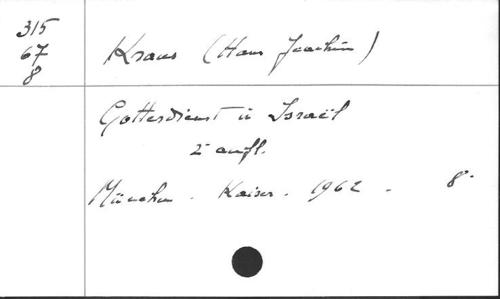 315
67
8
Kraus (Hans Joachim)
Gottesdienst in Israël
2 aufl.
München - Kaiser - 1962 - 8°